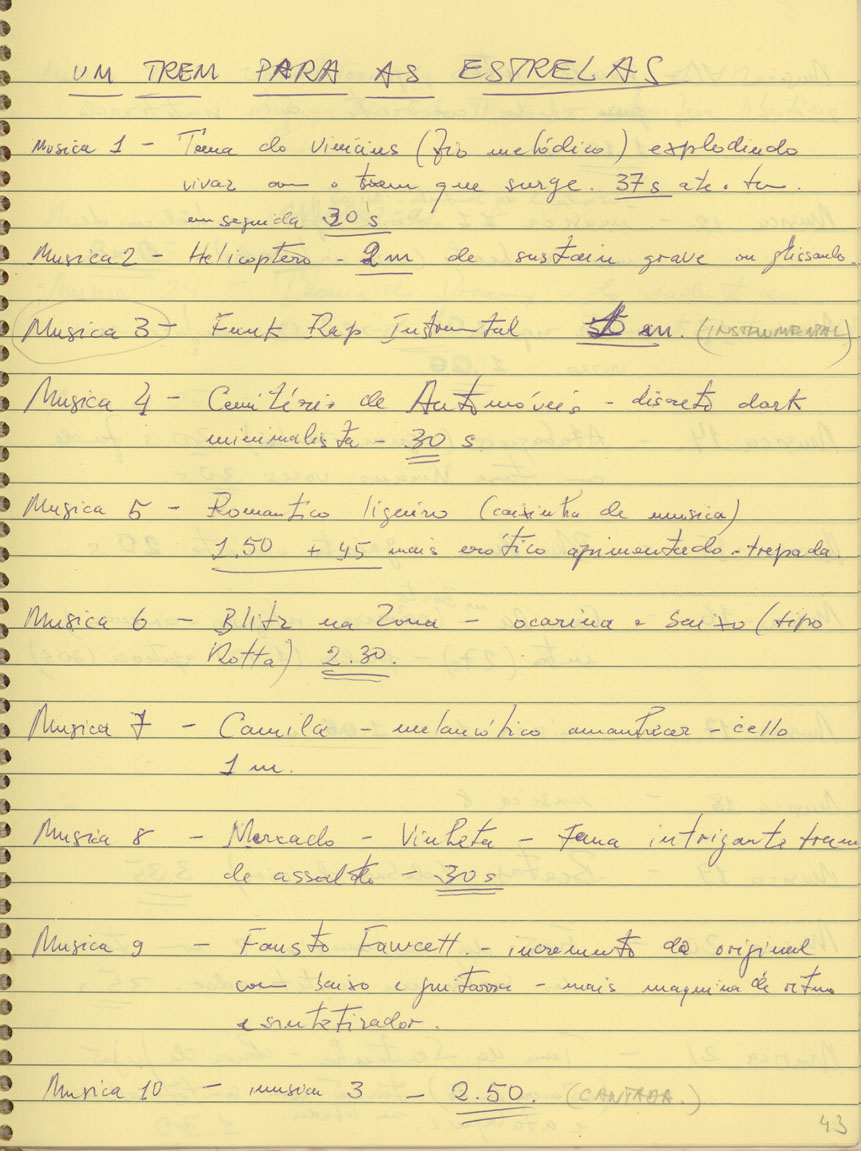 UM TREM PARA AS ESTRELAS
Musica 1 - Tema do Vinicius (fio melódico) explodindo
vivaz com o trem que surge. 37s ate o tem
em seguida 30's
Musica 2 - Helicoptero - 2m de sustain grave ou glissando.
Musica 3 - Funk Rap Instrumental m. (INSTRUMENTAL)
Musica 4 - Cemitério de Automóveis - discreto dark
minimalista - 30 s
Musica 5 - Romantico ligeiro (caixinha de musica)
1.50 + 45 mais erótico apimentado - trepada.
Musica 6 - Blitz na Zona - ocarina e baixo (tipo
Rotta) 2.30.
Musica 7 - Camila - melancólico - cello
1 m.
Musica 8 - Mercado - Vinheta - Tema intrigante trama
de assalto - 30 s
Musica 9 - Fausto Fawcett. - incremento do original
com baixo e guitarra - mais maquina de ritmo
e sintetizador.
Musica 10 - musica 3 - 2.50. (CANTADA.)
43